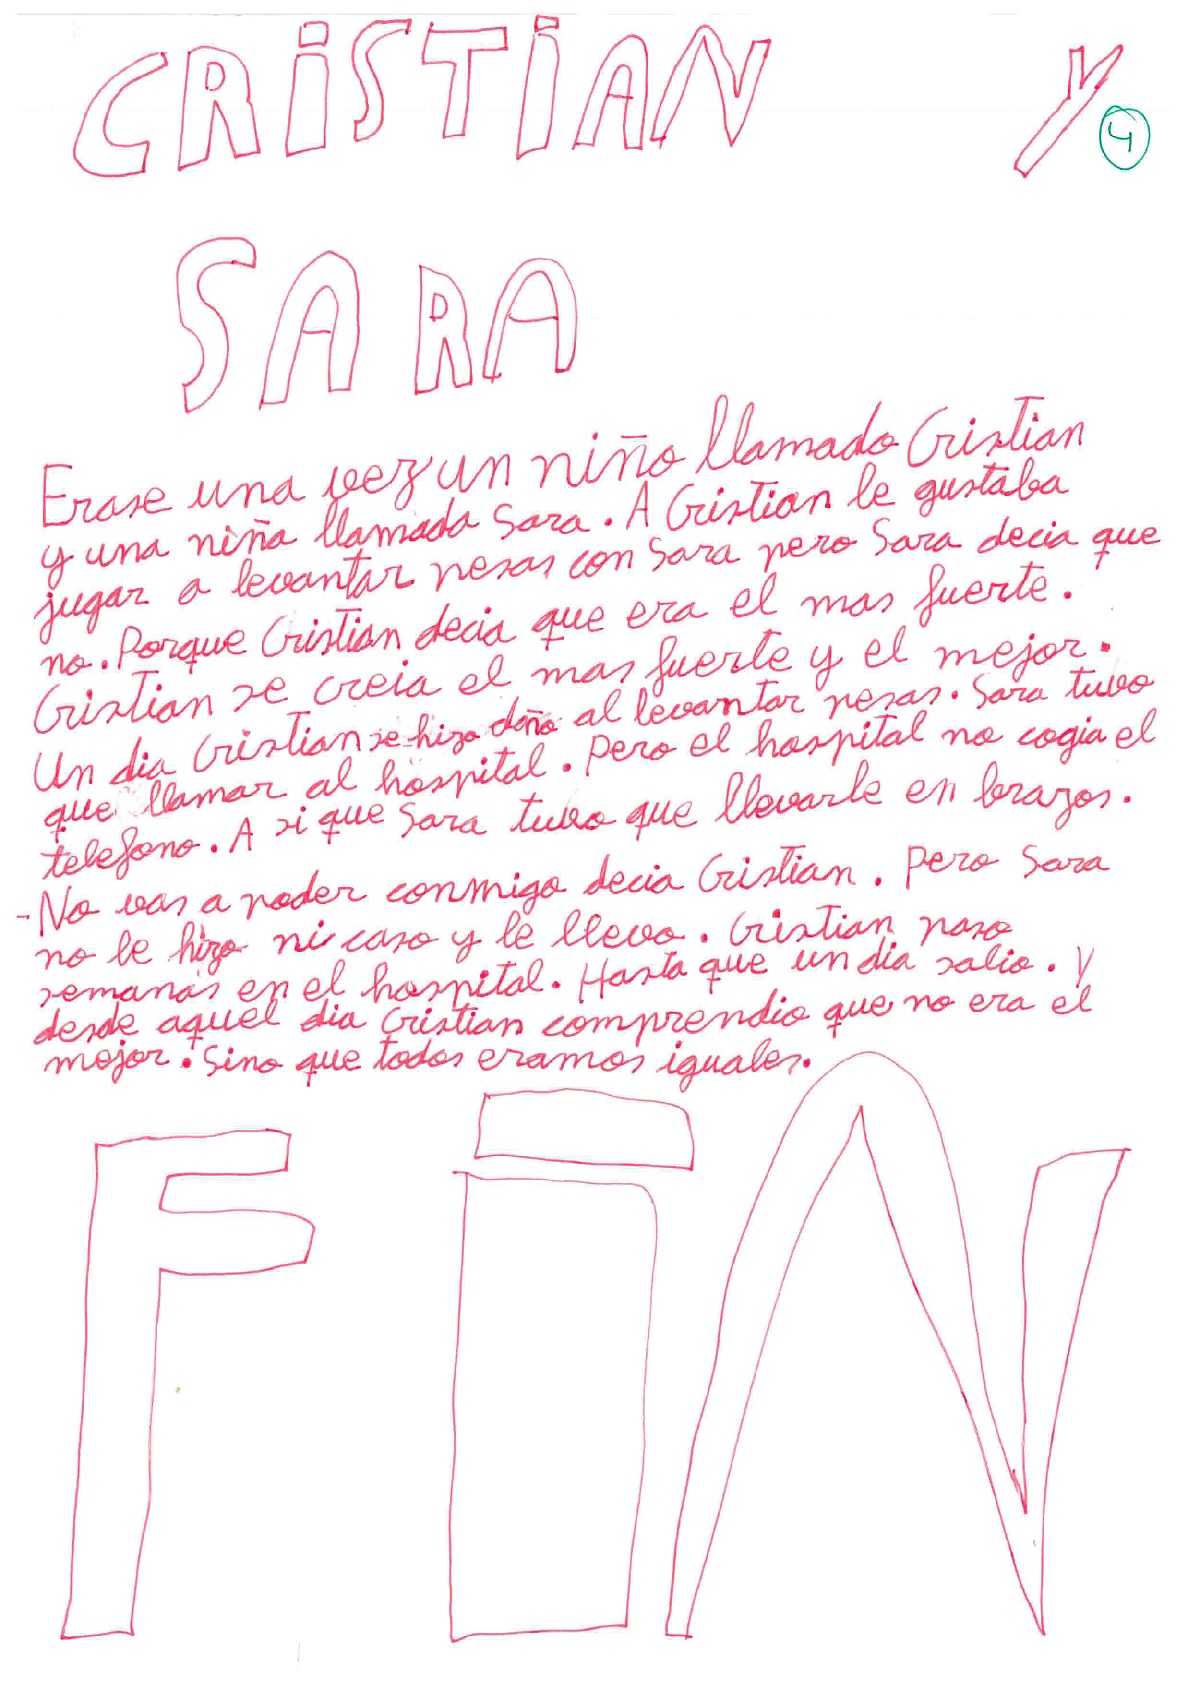 CRiSTiAN Y
4
SARA
Erase una vez un niño llamado Cristian
y una niña llamada Sara. A Cristian le gustaba
jugar a levantar pesas con Sara pero Sara decia que
no. Porque Cristian decia que era el mas fuerte.
Cristian se creia el mas fuerte y el mejor.
Un dia Cristian se hizo daño al levantar pesas. Sara tubo
que llamar al hospital. Pero el hospital no cogia el
telefono. A si que Sara tubo que llevarle en brazos.
-No vas a poder conmigo decia Cristian. Pero Sara
no le hizo ni caso y le llevo. Cristian paso
semanas en el hospital. Hasta que un dia salio. Y
desde aquel dia Cristian comprendio que no era el
mejor. Sino que todos eramos iguales.
FiN